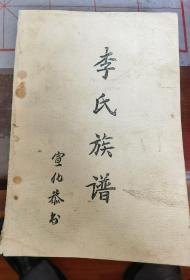 李氏族谱
宣化恭书